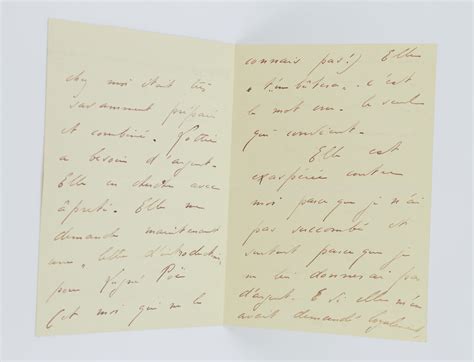 chez moi était très
savamment préparé
et combiné. 
a besoin d'argent.
Elle en cherche avec
âpreté. Elle me
demande maintenant
une "lettre d'introduction"
pour Lugné Poë
(et moi qui ne le
connais pas!) Elle
c'est
le mot  le seul
qui convient.
Elle est
exaspérée contre
moi parce que je n'ai
pas succombé et
surtout parce que je
ne lui donnerai pas
d'argent. E si elle m'en
avait demandé loyalement,